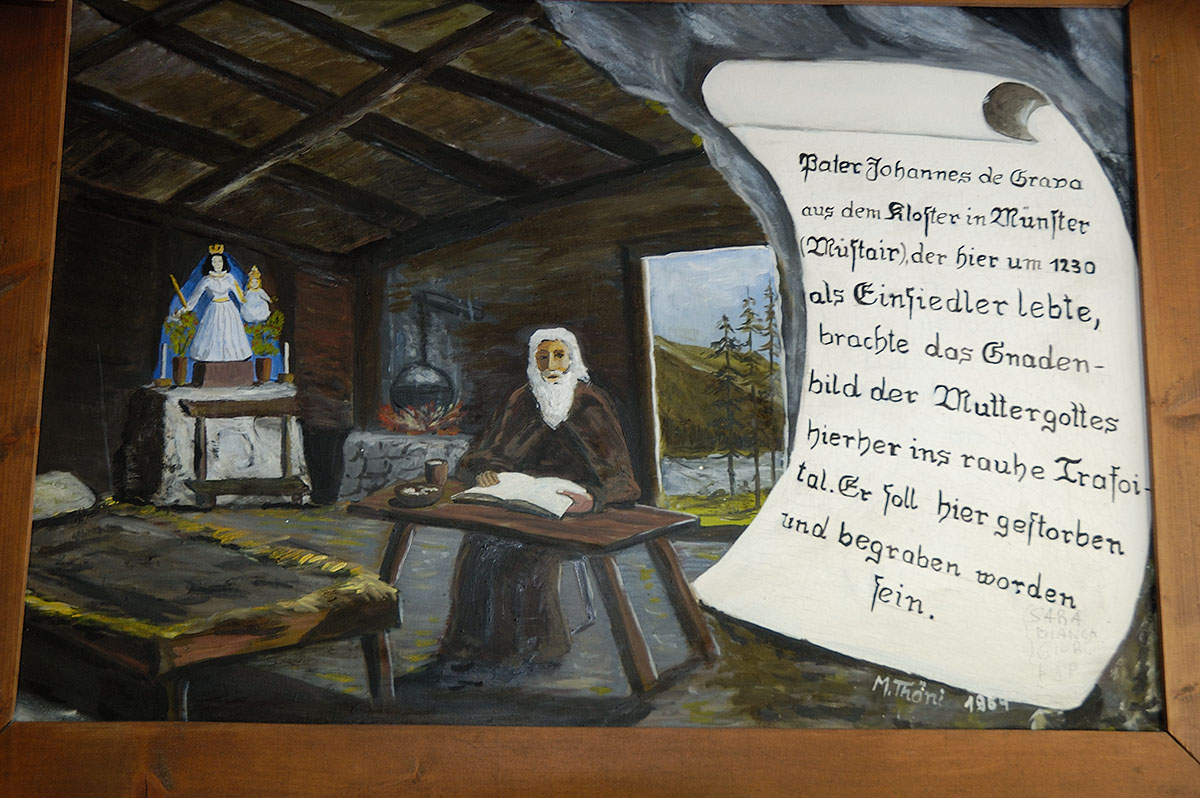 Pater Johannes de Grava
aus dem Kloſter in Münſter
(Müſtair), der hier um 1230
als Einſiedler lebte,
brachte das Gnaden-
bild der Muttergottes
hierher ins rauhe Trafoi-
tal. Er ſoll hier geſtorben
und begraben worden
ſein.
SARA
BIANCA
M. Thöni 1964